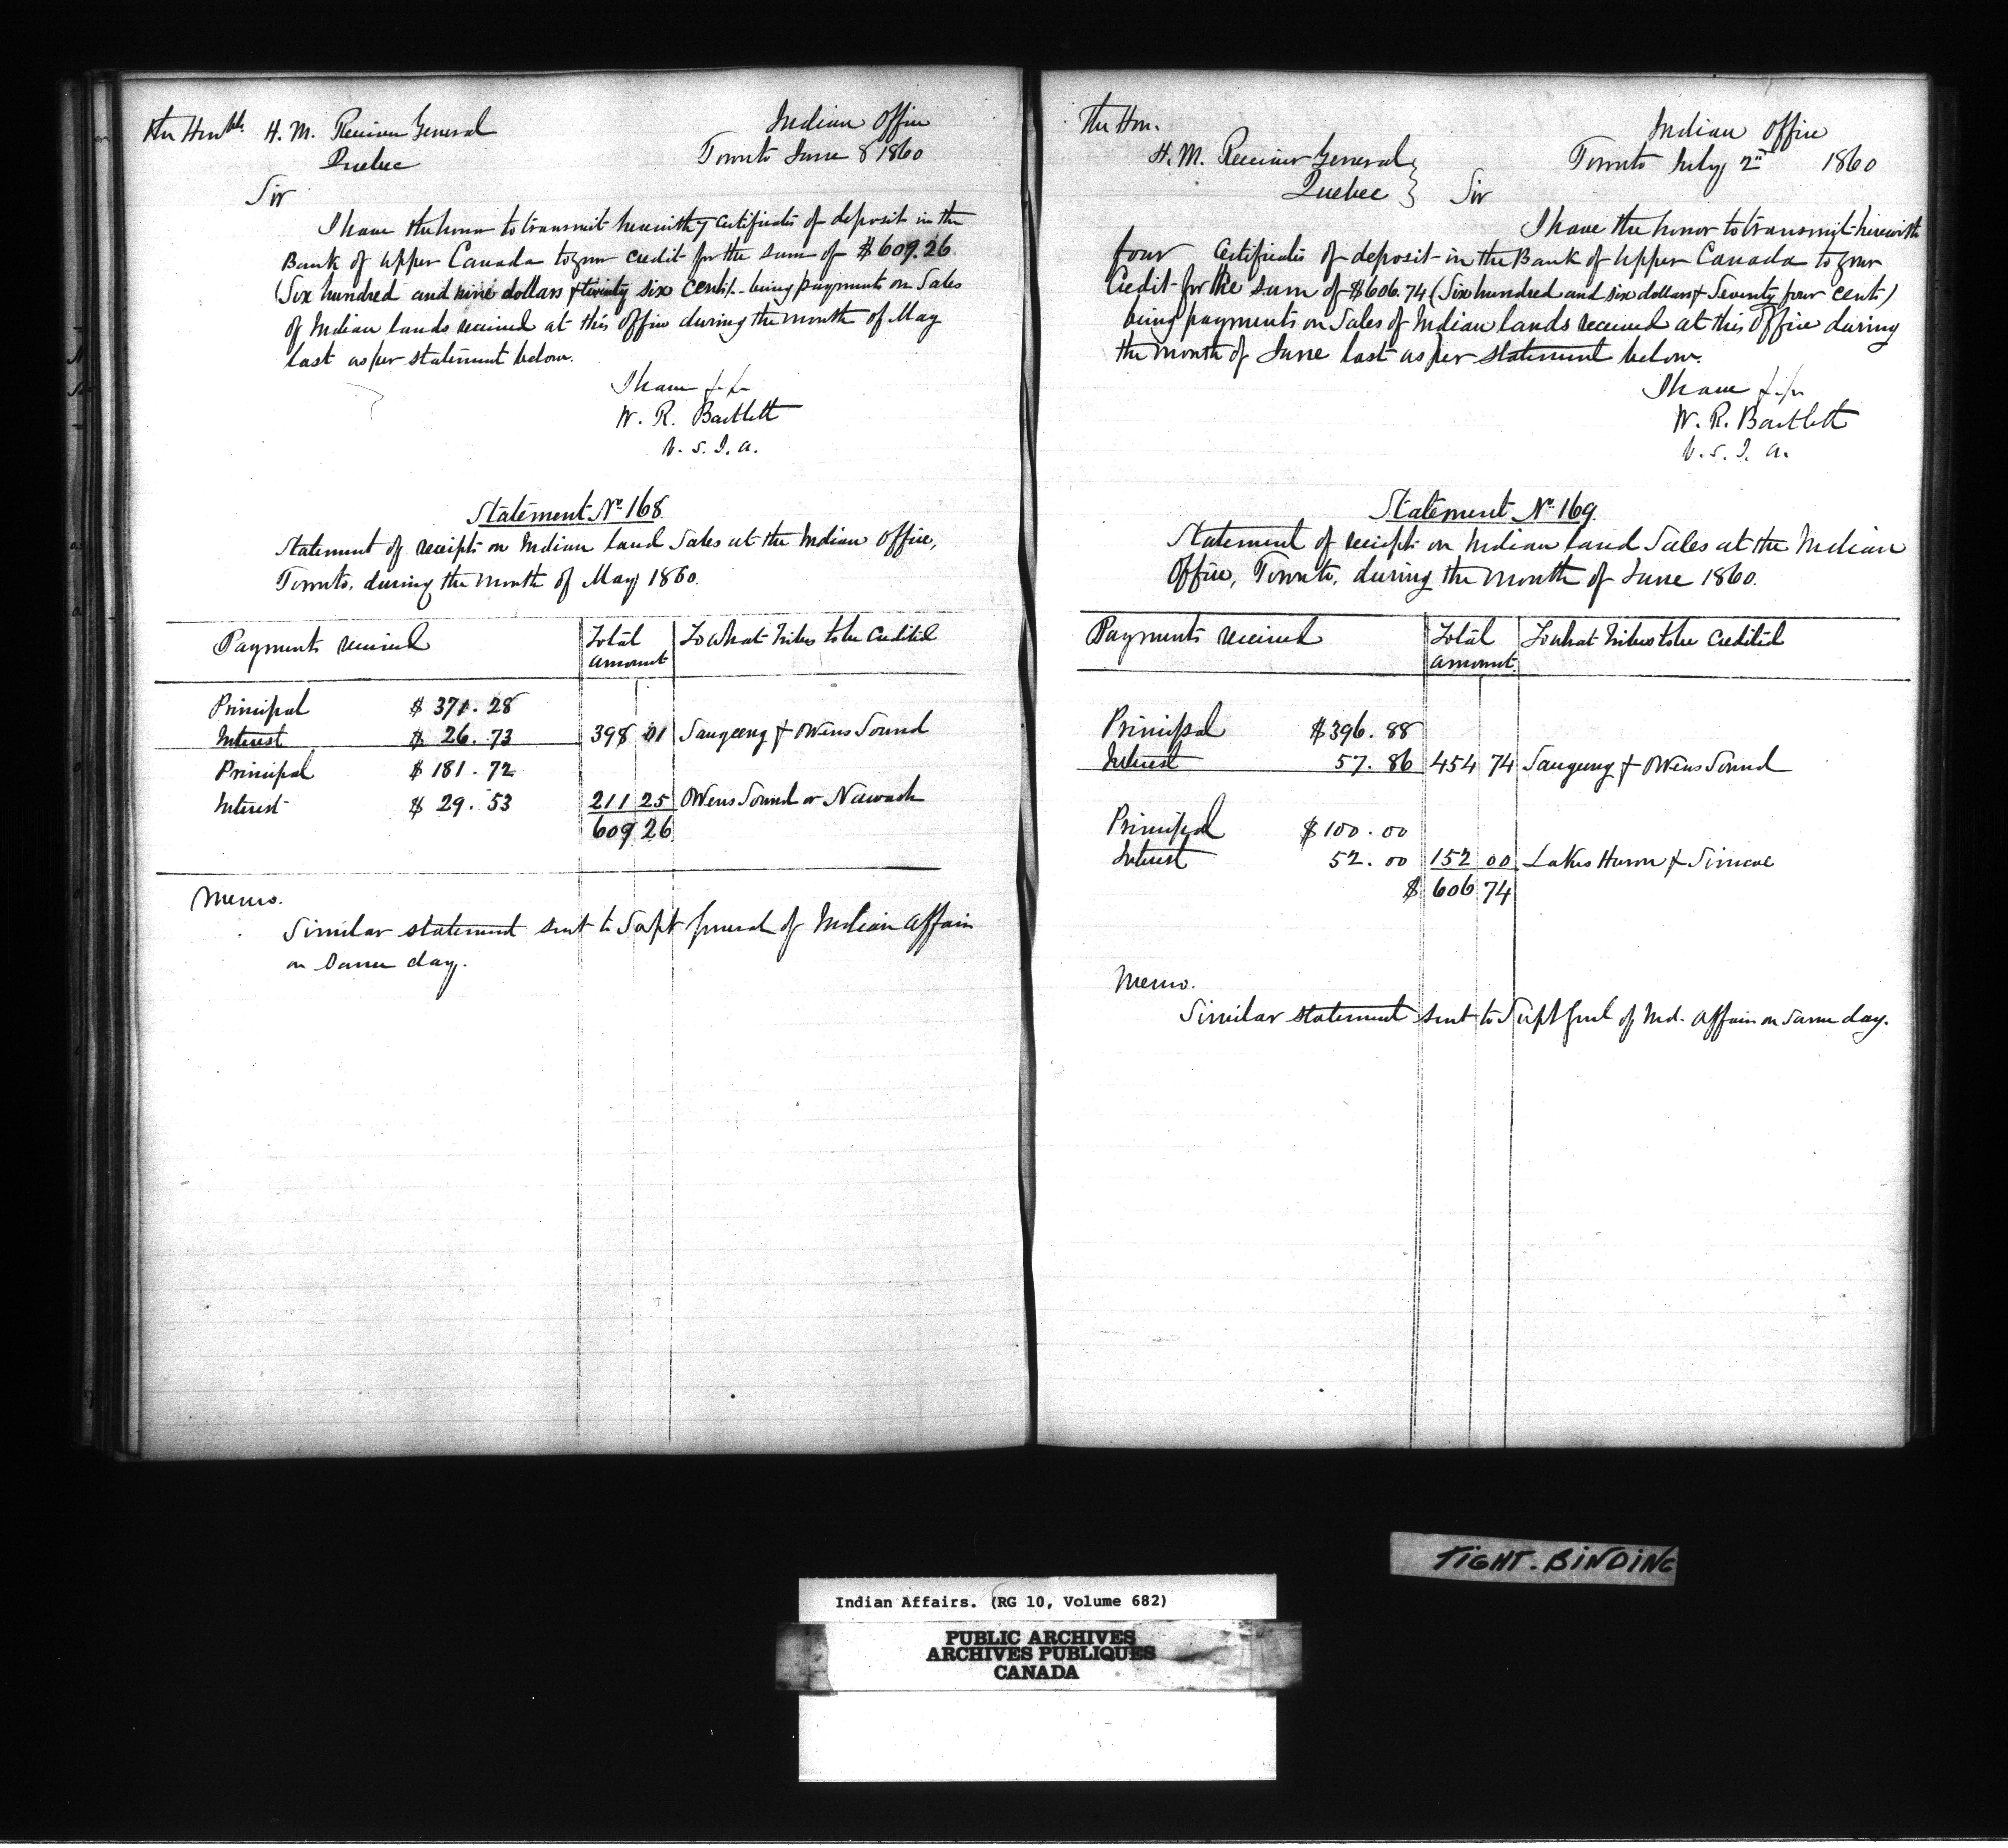 The Honble. H. M. Receiver General
Quebec
Indian Office
Toronto June 8 1860
Sir
I have the honor to transmit herewith 7 certificates of deposit in the
Bank of Upper Canada to your credit for the sum of $609.26
(Six hundred and nine dollars & twenty six cents). being payments on Sales
of Indian lands received at this Office during the month of May
last as per statement below.
I have &.&.
W. R. Bartlett
V. S. I. A.
Statement No. 168
Statement of receipts on Indian land Sales at the Indian Office,
Toronto, during the month of May 1860.
Payments received Total amount To what Tribes to be Credited
Principal $ 371.28
Interest $ 26.73 398 01 Saugeeng & Owens Sound
Principal $ 181.72
Interest $ 29.53 211 25 Owens Sound or Nawash
609 26
Memo.
Similar statement sent to Supt General of Indian Affairs
on same day.
The Hon.
H. M. Receiver General
Quebec
Indian Office
Toronto July 2nd 1860
Sir
I have the honor to transmit herewith
four Certificates of deposit in the Bank of Upper Canada to your
Credit for the sum of $606.74 (Six hundred and six dollars & Seventy four cents)
being payments on Sales of Indian lands received at this Office during
the month of June last as per statement below.
I have &.&.
W. R. Bartlett
V. S. I. A.
Statement No. 169.
Statement of receipts on Indian land Sales at the Indian
Office, Toronto, during the month of June 1860.
Payments received Total amount. To what Tribes to be Credited
Principal $396.88
Interest 57.86 454 74 Saugeeng & Owens Sound
Principal $100.00
Interest 52.00 152 00 Lakes Huron & Simcoe
$ 606 74
Memo.
Similar statement sent to Supt Genl of Ind. Affairs on same day.
TIGHT. BINDING
Indian Affairs. (RG 10, Volume 682)
PUBLIC ARCHIVES
ARCHIVES PUBLIQUES
CANADA